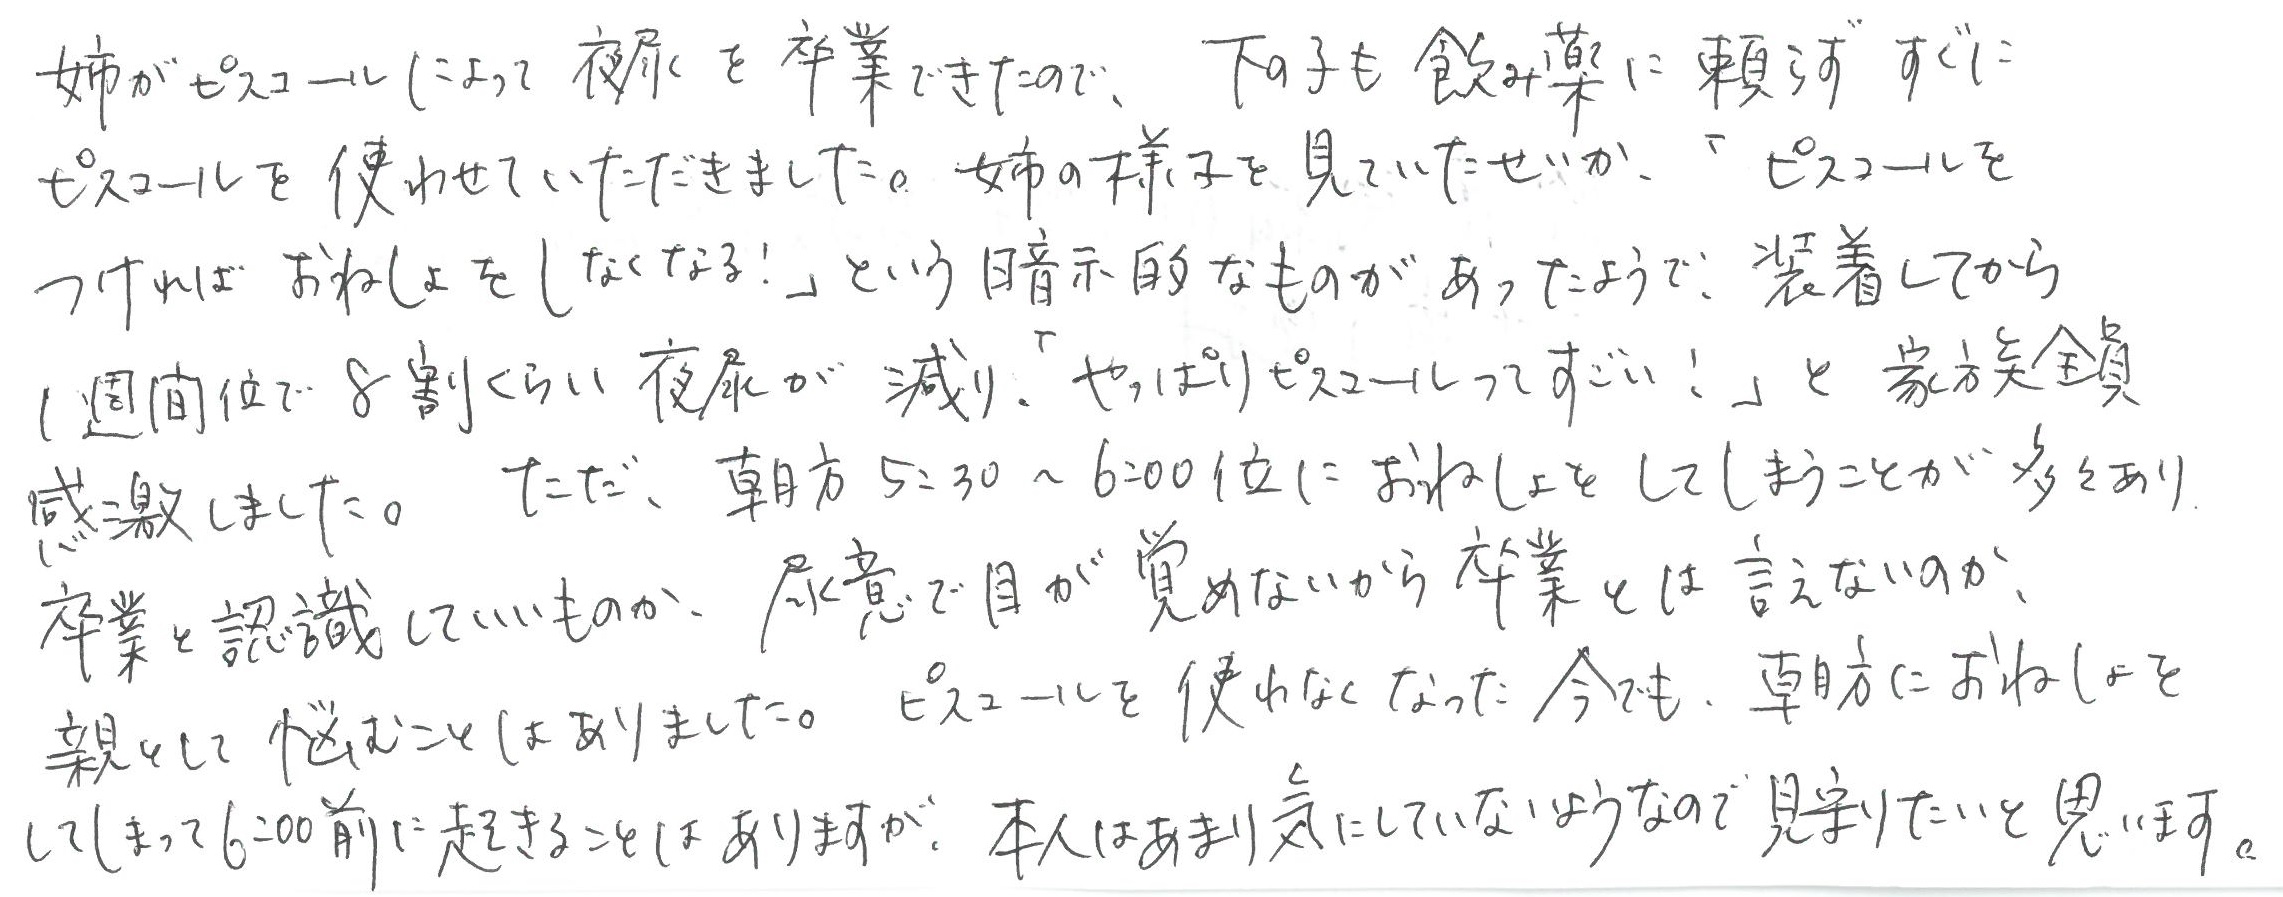 姉がピスコールによって夜尿を卒業できたので、下の子も飲み薬に頼らずすぐに
ピスコールを使わせていただきました。姉の様子を見ていたせいか、「ピスコールを
つければおねしょをしなくなる！」という暗示的なものがあったようで、装着してから
1週間位で8割くらい夜尿が減り、「やっぱりピスコールってすごい！」と家族全員
感激しました。ただ、朝方5:30～6:00位におねしょをしてしまうことが多々あり、
卒業と認識していいものか、尿意で目が覚めないから卒業とは言えないのか、
親として悩むことはありました。ピスコールを使わなくなった今でも、朝方におねしょを
してしまって6:00前に起きることはありますが、本人はあまり気にしていないようなので見守りたいと思います。